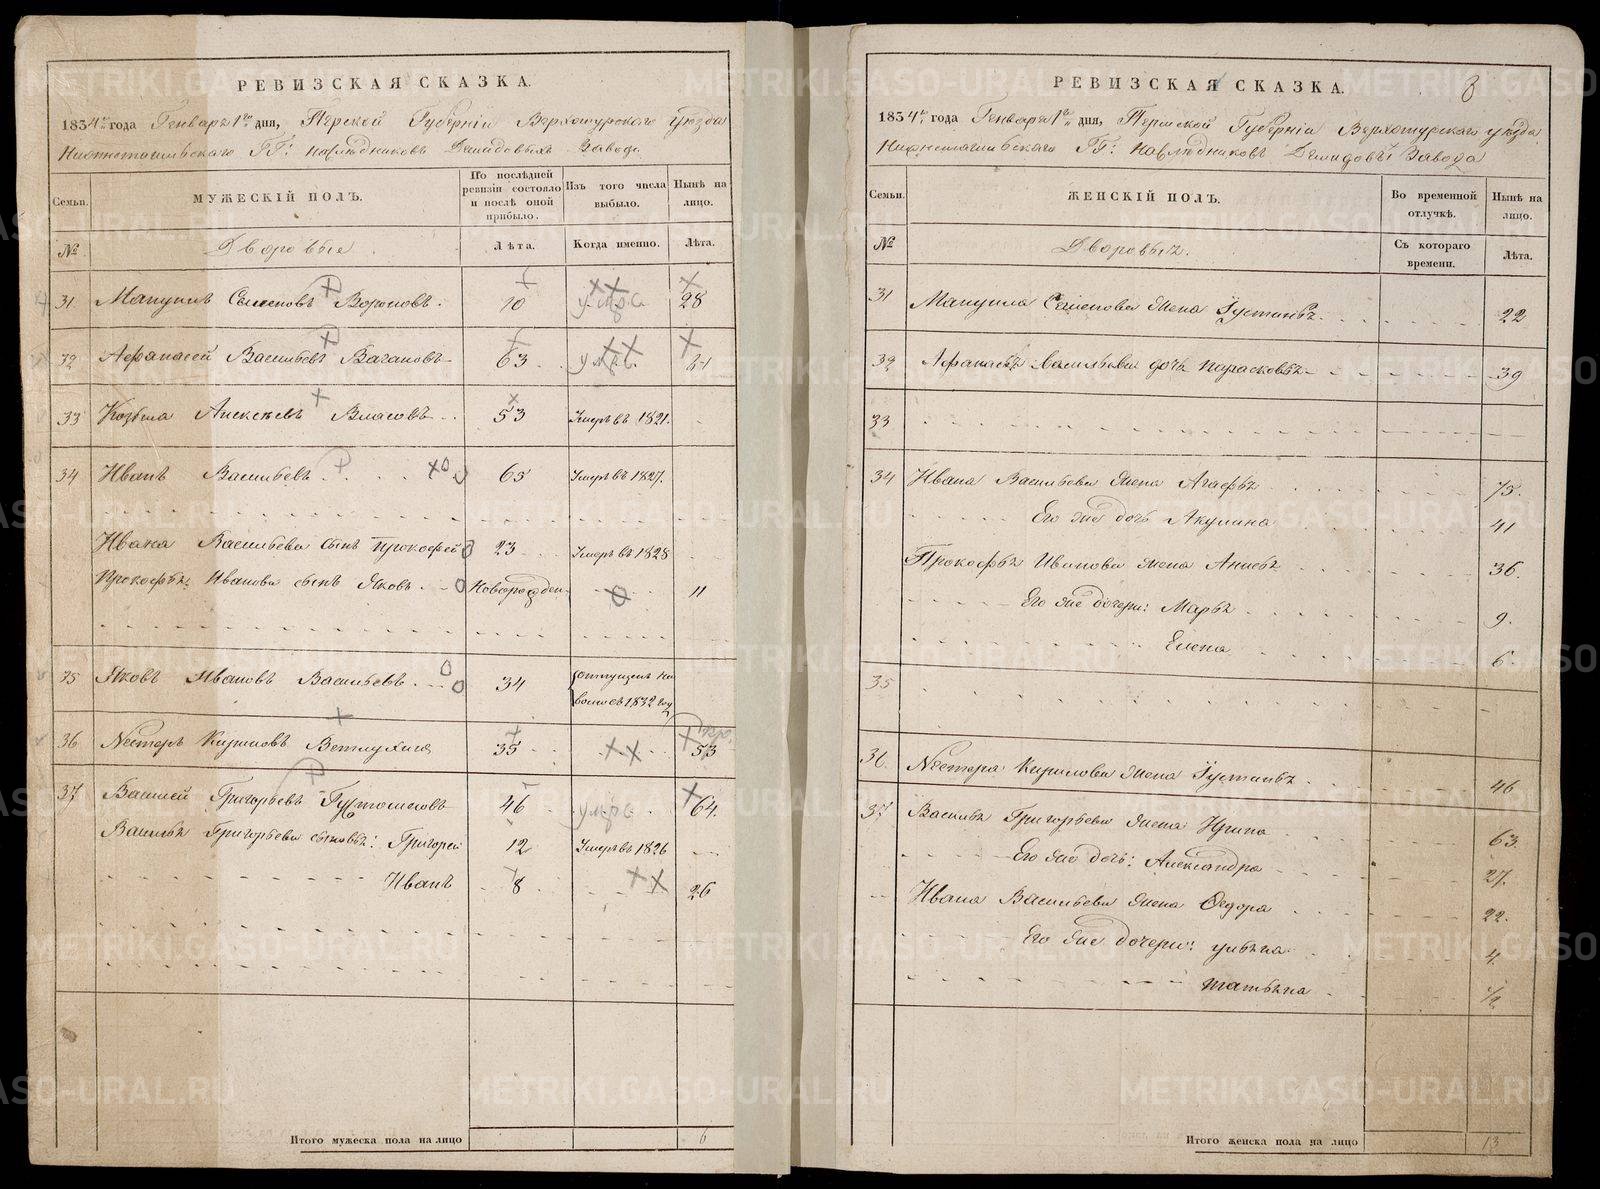 РЕВИЗСКАЯ СКАЗКА.
1834го года Генваря 1го дня, Пермской Губернiи Верхотурского уѣзда
Нижнетагильского ГГ: наслѣдниковъ Демидовыхъ Завода.
Семьи.
МУЖЕСКIЙ ПОЛЪ.
По послѣдней ревизiи состояло и послѣ оной прибыло.
Изъ того числа выбыло.
Нынѣ на лицо.
№
Дворовые
Лѣта.
Когда именно.
Лѣта.
31 Мануилъ Семеновъ Вороновъ. 10 28
32 Афанасей Васильевъ Вагановъ 63
33 Козьма Алексѣевъ Власовъ 53 Умеръ въ 1821.
34 Иванъ Васильевъ 65 Умеръ въ 1827.
Ивана Васильева сынъ Прокофей 23 Умеръ въ 1828
Прокофья Иванова сынъ Яковъ Новорожден. 11
35 Яковъ Ивановъ Васильевъ 34 отпущенъ на
волю въ 1832 году
36 Нестеръ Кириловъ Ветлугинъ 35 53
37 Василей Григорьевъ 46 64.
Василья Григорьева сыновья: Григорей 12 Умеръ въ 1826
Иванъ 8 26
Итого мужеска пола на лицо 6
РЕВИЗСКАЯ СКАЗКА. 8
1834го года Генваря 1го дня, Пермской Губернiи Верхотурского уѣзда
Нижнетагильского ГГ: наслѣдниковъ Демидовыхъ Завода
Семьи.
ЖЕНСКIЙ ПОЛЪ.
Во временной отлучкѣ.
Нынѣ на лицо.
№
Дворовыя.
Съ котораго времени.
Лѣта.
31 Мануила Семенова жена Устинья 22
32 Афанасья Васильева дочь Парасковья 39
33
34 Ивана Васильева жена Агафья 75.
Его же дочь Акулина 41
Прокофья Иванова жена Анисья 36.
Его же дочери: Марья 9.
Елена 6
35
36. Нестера Кирилова жена Устинья 46
37 Василья Григорьева жена Ирина 63.
Его же дочь: Александра 27.
Ивана Васильева жена Федора 22.
Его же дочери: Ульяна 4.
Татьяна 1/2
Итого женска пола на лицо 13
METRIKI.GASO-URAL.RU